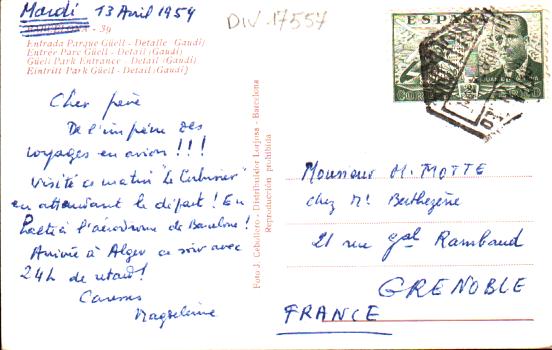 Mardi 13 Avril 1954
DIV-17557
BARCELONA - 39
Entrada Parque Güell - Detalle (Gaudí)
Entrée Parc Güell - Detail (Gaudí)
Güell Park Entrance - Detail (Gaudí)
Eintritt Park Güell - Detail (Gaudí)
Cher père
De l'imprévu des
voyages en avion !!!
Visité ce matin "Le
en attendant le départ ! En
à l'aérodrome de Barcelone !
Arrivée à Alger ce soir avec
24h de retard !
Caresses
Magdeleine
Foto J. Cebollero - Distribuidor Lorjosa - Barcelona
Reproducción prohibida
ESPAÑA
JUAN DE LA
CORREO
Monsieur H. MOTTE
chez Mr Berthezène
21 rue gal Rambaud
GRENOBLE
FRANCE